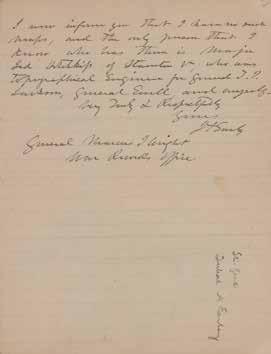 I now inform you that I have no such
maps, and the only person that I
know who has them is Major
Jed Hotchkiss of Staunton Va, who was
Topographical Engineer for General T. J.
Jackson, General Ewell and myself.
Very Truly & Respectfully
Yours
J A Early
General Marcus J Wright
War Records Office
Jubal A Early